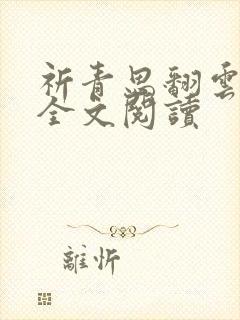 祈青思翻雲
全文閱讀
離忻